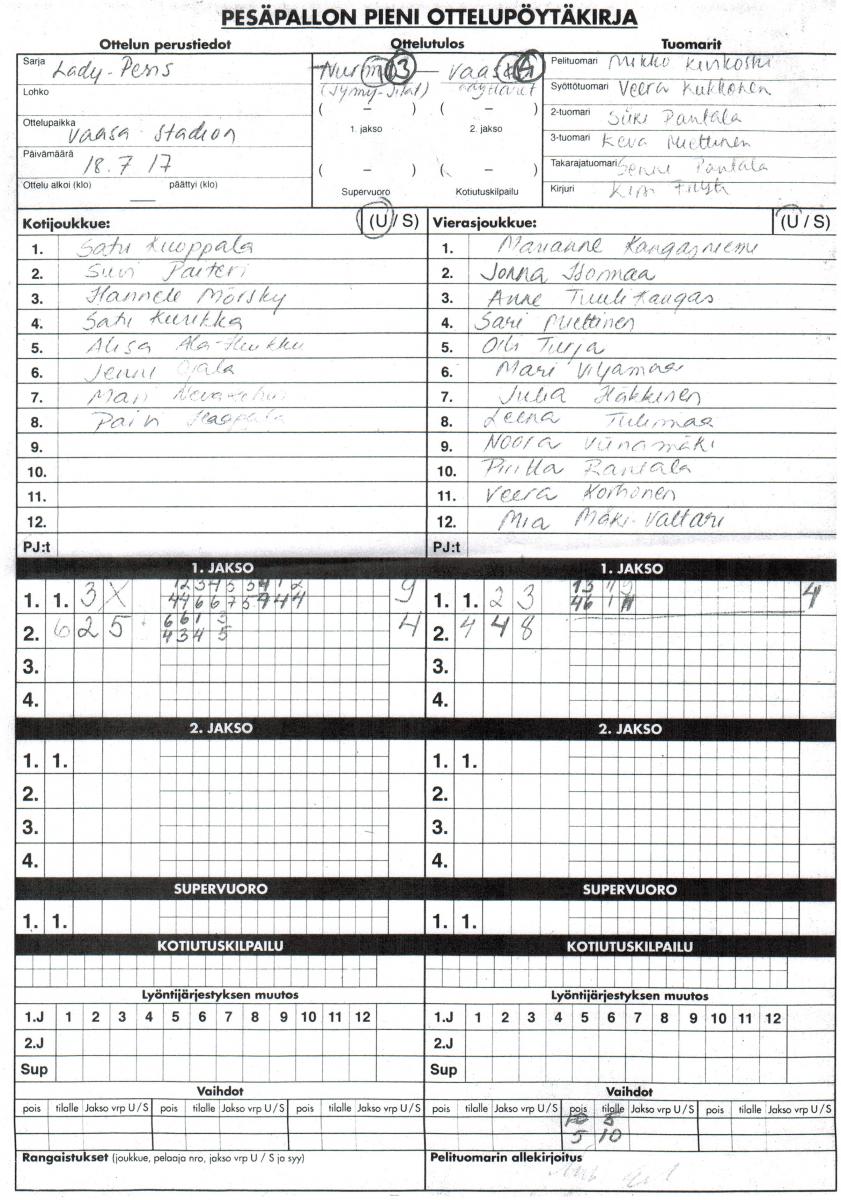 PESÄPALLON PIENI OTTELUPÖYTÄKIRJA
Ottelun perustiedot
Ottelutulos
Tuomarit
Sarja Lady-Pesis
Lohko
Ottelupaikka
Vaasa Stadion
Päivämäärä
18.7 17
Ottelu alkoi (klo) päättyi (klo)
Nurmo 13 – Vaasa 4
(Jymy-Jilat)
( – ) ( – )
1. jakso 2. jakso
( – ) ( – )
Supervuoro Kotiutuskilpailu
Pelituomari Mikko
Syöttötuomari Veera Kukkonen
2-tuomari Siiri Pantala
3-tuomari Keva Miettinen
Takarajatuomari Senni Pantala
Kirjuri
Kotijoukkue: (U / S)
1. Satu Kuoppala
2. Suvi
3. Hannele Mörsky
4. Satu Kuukka
5. Alisa
6. Jenni Ojala
7. Mari
8. Haapala
9.
10.
11.
12.
PJ:t
Vierasjoukkue: (U / S)
1. Marianne Kangasniemi
2. Jonna Isomaa
3. Anne Tuulikangas
4. Sari Miettinen
5. Oili Turja
6. Mari Viljamaa
7. Julia Häkkinen
8. Leena Tulimaa
9. Noora Viinamäki
10. Piritta Rantala
11. Veera Korhonen
12. Mia Mäki-Valtari
PJ:t
1. JAKSO 1. JAKSO
1. 1. 3 X 9
2. 6 2 5 4
3.
4.
1. 1. 2 3 4
2. 4 4 8
3.
4.
2. JAKSO 2. JAKSO
1. 1. 1. 1.
2. 2.
3. 3.
4. 4.
SUPERVUORO SUPERVUORO
1. 1. 1. 1.
KOTIUTUSKILPAILU KOTIUTUSKILPAILU
Lyöntijärjestyksen muutos Lyöntijärjestyksen muutos
1.J 1 2 3 4 5 6 7 8 9 10 11 12 1.J 1 2 3 4 5 6 7 8 9 10 11 12
2.J 2.J
Sup Sup
Vaihdot Vaihdot
pois tilalle Jakso vrp U / S pois tilalle Jakso vrp U / S pois tilalle Jakso vrp U / S pois tilalle Jakso vrp U / S pois tilalle Jakso vrp U / S pois tilalle Jakso vrp U / S
10 5
5 10
Rangaistukset (joukkue, pelaaja nro, jakso vrp U / S ja syy) Pelituomarin allekirjoitus